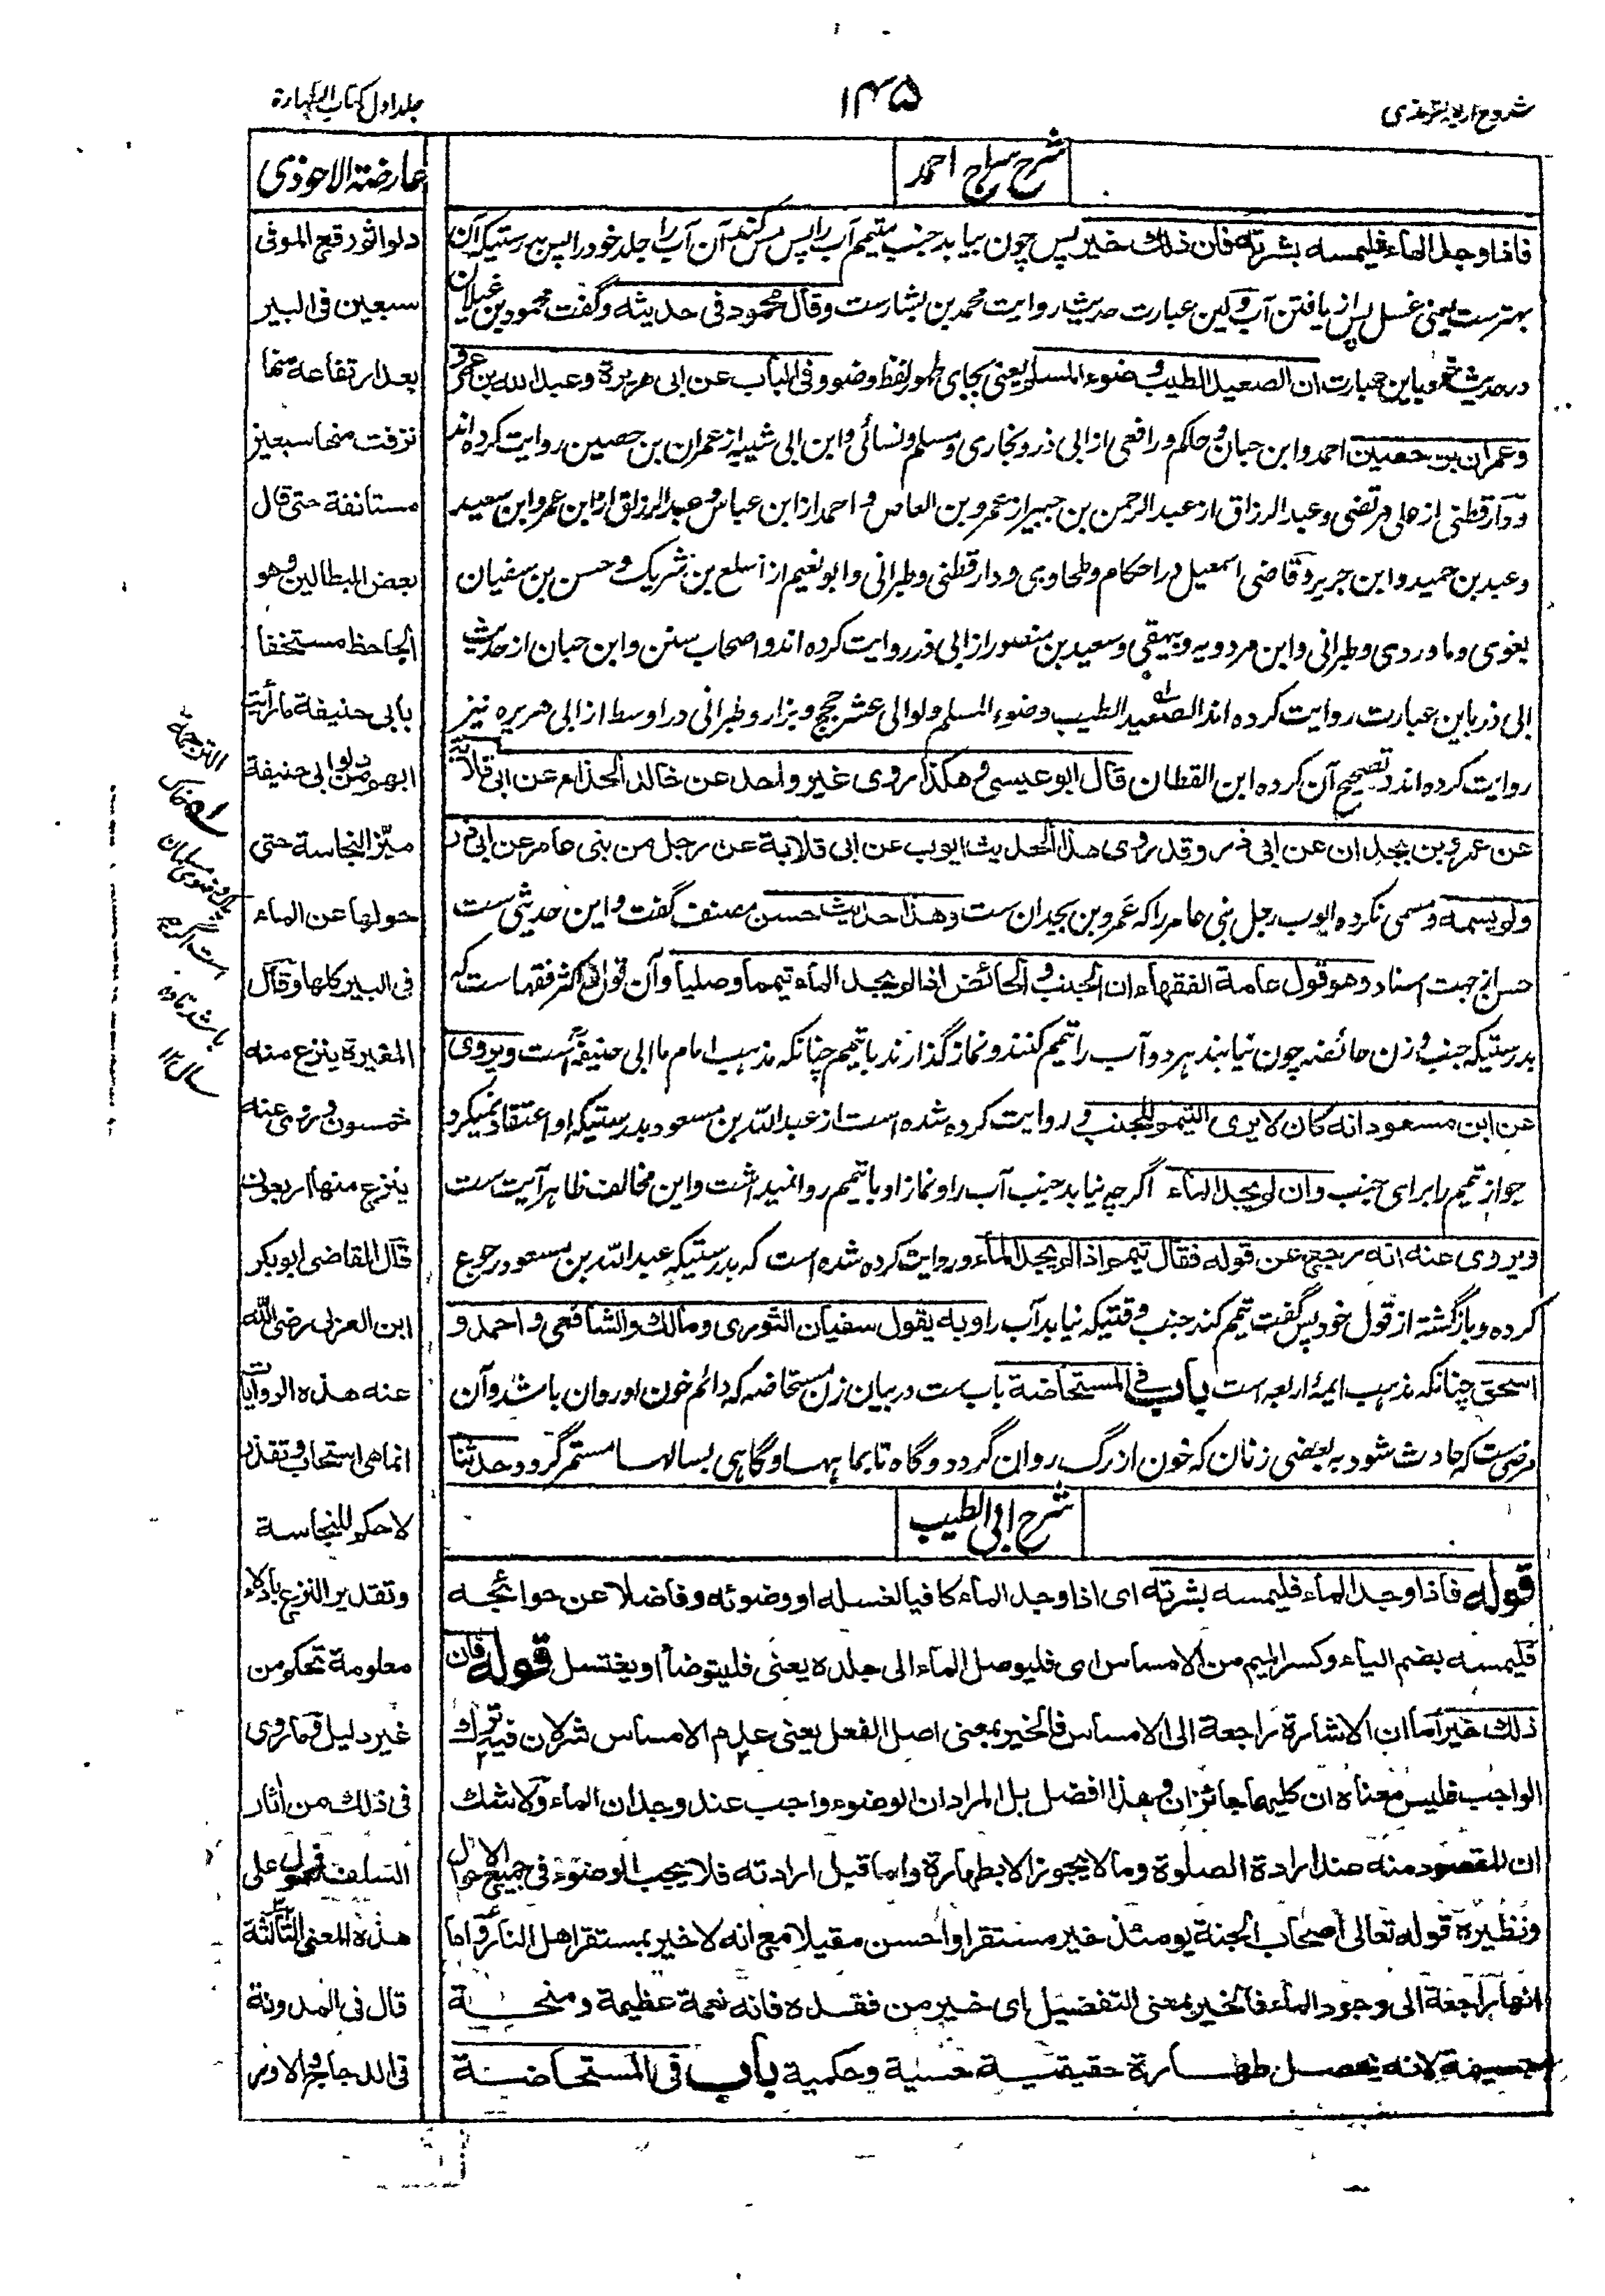 شروح اربعہ ترمذی
۱۴۵
جلد اول کتاب الطہارة
شرح سراج احمد
فاذا وجد الماء فليمسه بشرته فان ذلك خير پس چون بیابد جنب متیمم آب را پس مس کند آن آب را جلد خود را پس بدرستیکه آن
بهترست یعنی غسل پس از یافتن آب ولین عبارت حدیث روایت محمد بن بشارست وقال محمود فی حديثه وگفت محمود بن غیلان
در حدیث خود باین عبارت ان الصعيد الطيب وضوء المسلم یعنی بجای طهور لفظ وضو وفی الباب عن ابی هريرة وعبد الله بن عمرو
وعمران بن حصين احمد وابن حبان وحاکم ورافعی از ابی ذر وبخاری ومسلم ونسائی وابن ابی شیبه از عمران بن حصین روایت کرده اند
ودارقطنی از علی مرتضی وعبد الرزاق از عبد الرحمن بن جبیر از عمرو بن العاص واحمد از ابن عباس وعبد الرزاق از ابن عمر وابن سعید
وعبد بن حمید وابن جریر وقاضی اسمعیل در احکام وطحاوی ودارقطنی وطبرانی وابو نعیم از اسلع بن شریک وحسن بن سفیان
بغوی وماوردی وطبرانی وابن مردویه وبیهقی وسعید بن منصور از ابی ذر روایت کرده اند واصحاب سنن وابن حبان از حدیث
ابی ذر باین عبارت روایت کرده اند الصعيد الطيب وضوء المسلم ولو الى عشر حجج وبزار وطبرانی در اوسط از ابی هریره نیز
روایت کرده اند وتصحیح آن کرده ابن القطان قال ابو عيسى وهكذا روى غير واحد عن خالد الحذاء عن ابی قلابة
عن عمرو بن بجدان عن ابی ذر وقد روى هذا الحديث ايوب عن ابی قلابة عن رجل من بنی عامر عن ابی ذر
ولم يسمه ومسمی نکرده ایوب رجل بنی عامر را که عمرو بن بجدان ست وهذا حديث حسن مصنف گفت واین حدیثی ست
حسن از جهت اسناد وهو قول عامة الفقهاء ان الجنب والحائض اذا لم يجد الماء تيمما وصليا وآن قول اکثر فقها است که
بدرستیکه جنب وزن حائضه چون نیابند هر دو آب را تیمم کنند ونماز گذارند با تیمم چنانکه مذهب امام ما ابی حنیفه است ويروى
عن ابن مسعود انه كان لا يرى التيمم للجنب وروایت کرده شده است از عبد الله بن مسعود بدرستیکه او اعتقاد نمیکرد
جواز تیمم را برای جنب وان لم يجد الماء اگرچه نیابد جنب آب را ونماز او با تیمم روا نمیداشت واین مخالف ظاهر آیت ست
ويروى عنه انه رجع عن قوله فقال تيمم اذا لم يجد الماء وروایت کرده شده است که بدرستیکه عبد الله بن مسعود رجوع
کرده وبازگشته از قول خود پس گفت تیمم کند جنب وقتیکه نیابد آب را وبه يقول سفيان الثوری ومالك والشافعی واحمد و
اسحق چنانکه مذهب ایمهٔ اربعه است باب فی المستحاضة باب ست در بیان زن مستحاضه که دائم خون او روان باشد وآن
مرضی ست که حادث شود به بعضی زنان که خون از رگ روان گردد وگاه تا بماهها وگاهی بسالها مستمر گردد حدثنا
شرح ابی الطیب
قوله فاذا وجد الماء فليمسه بشرته ای اذا وجد الماء كافيا لغسله او وضوئه وفاضلا عن حوائجه
فليمسه بضم الياء وكسر الميم من الامساس ای فليوصل الماء الى جلده يعنی فليتوضأ او يغتسل قوله فان
ذلك خير اما ان الاشارة راجعة الى الامساس فالخير بمعنى اصل الفعل يعنى عدم الامساس شر لان فيه ترك
الواجب فليس معناه ان كليهما جائزان وهذا افضل بل المراد ان الوضوء واجب عند وجدان الماء ولا شك
ان المقصود منه عند ارادة الصلوة وما لا يجوز الا بطهارة واما قبل ارادته فلا يجب الوضوء فی جميع الاحوال
ونظيره قوله تعالى اصحاب الجنة يومئذ خير مستقرا واحسن مقيلا مع انه لا خير بمستقر اهل النار واما
انها راجعة الى وجود الماء فالخير بمعنى التفضيل ای خير من فقده فانه نعمة عظيمة ومنحة
جسيمة لانه يحصل طهارة حقيقية حسية وحكمية باب فی المستحاضة
عارضة الاحوذی
دلو اثورقع الموثی
سبعين فی البير
بعد ارتفاعة منها
نزفت منها سبعين
مستانفة حتى قال
بعض البطالين وهو
الجاحظ مستخفا
بابی حنيفة ما رأيت
ابهم من دلو ابی حنيفة
ميّز النجاسة حتى
حولها عن الماء
فی البير كلها وقال
المغيرة ينزع منه
خمسون وروى عنه
ينزع منها اربعون
قال القاضی ابو بكر
ابن العربی رضی الله
عنه هذه الروايات
انما هی استحاب وتقذر
لا حكم للنجاسة
وتقدير النزع بادلاء
معلومة تحكم من
غير دليل وما روى
فی ذلك من اثار
السلف فمحمول على
هذه المعنى الثالثة
قال فی المدونة
فی الدجاج والاوز
الترجمة
خاک
وضوی مسلمان
است اگرچه
باشد تا ده
سال ۱۲